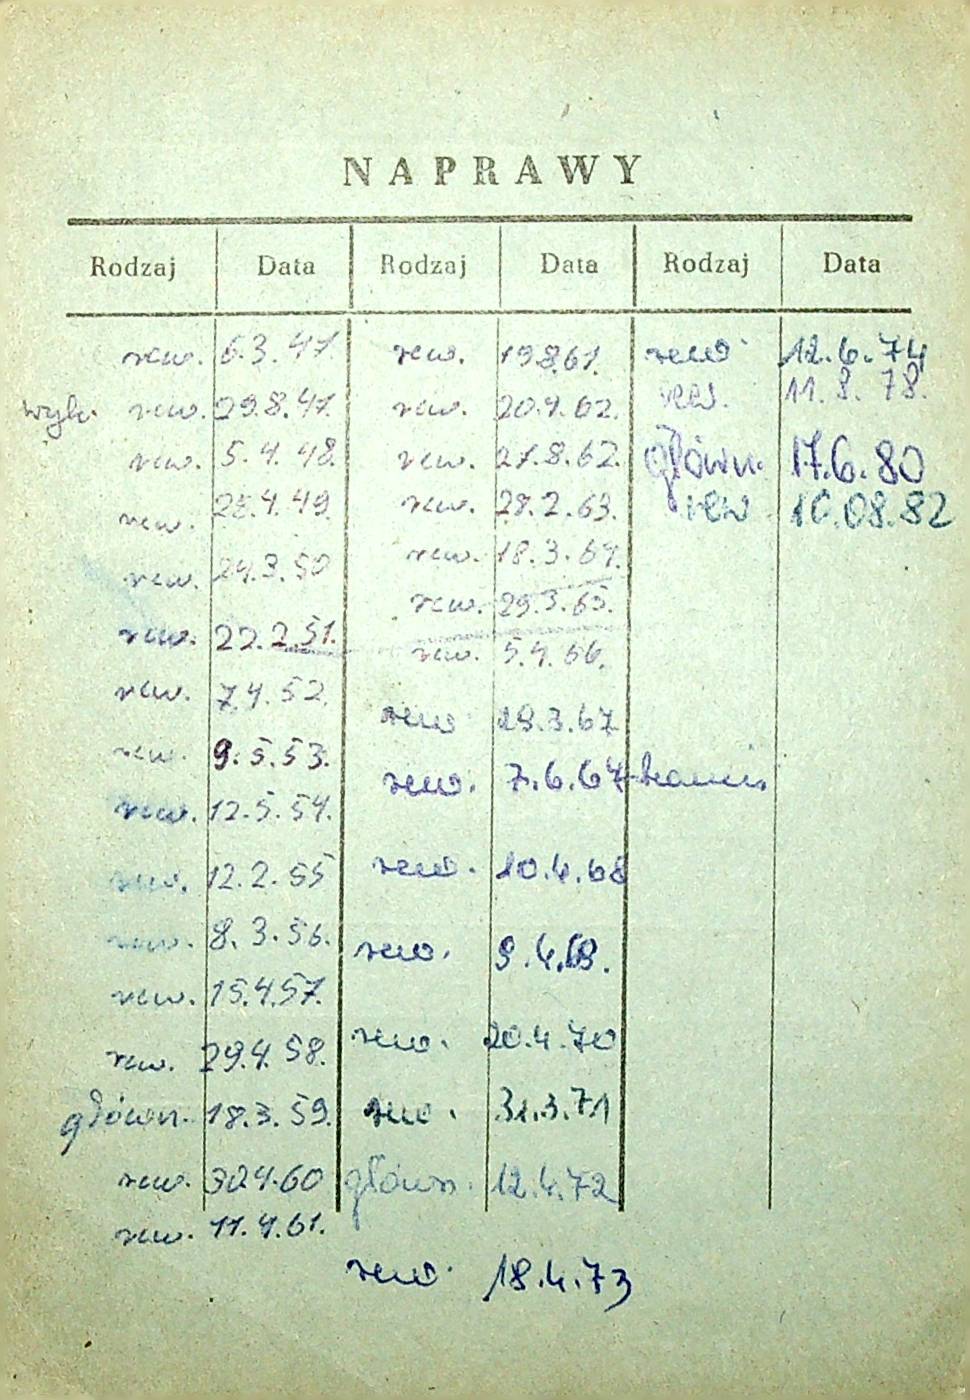 NAPRAWY
Rodzaj Data Rodzaj Data Rodzaj Data
rew. 6.3.47. rew. 19.8.61. rew. 12.6.74
rew. 29.8.47. rew. 20.4.62. rew. 11.8.78.
rew. 5.4.48. rew. 27.8.62. główn. 17.6.80
rew. 28.4.49. rew. 28.2.63. rew 10.08.82
rew. 24.3.50 rew. 18.3.64.
rew. 29.3.65.
rew. 22.2.51. rew. 5.4.66.
rew. 7.4.52. rew 28.3.67
rew. 9.5.53. rew. 7.6.67
rew. 12.5.54.
rew. 12.2.55 rew. 10.4.68
rew. 8.3.56. rew. 9.4.69.
rew. 15.4.57.
rew. 29.4.58. rew. 20.4.70
główn. 18.3.59. rew. 31.3.71
rew. 30.4.60 główn. 12.4.72
rew. 11.4.61.
rew. 18.4.73